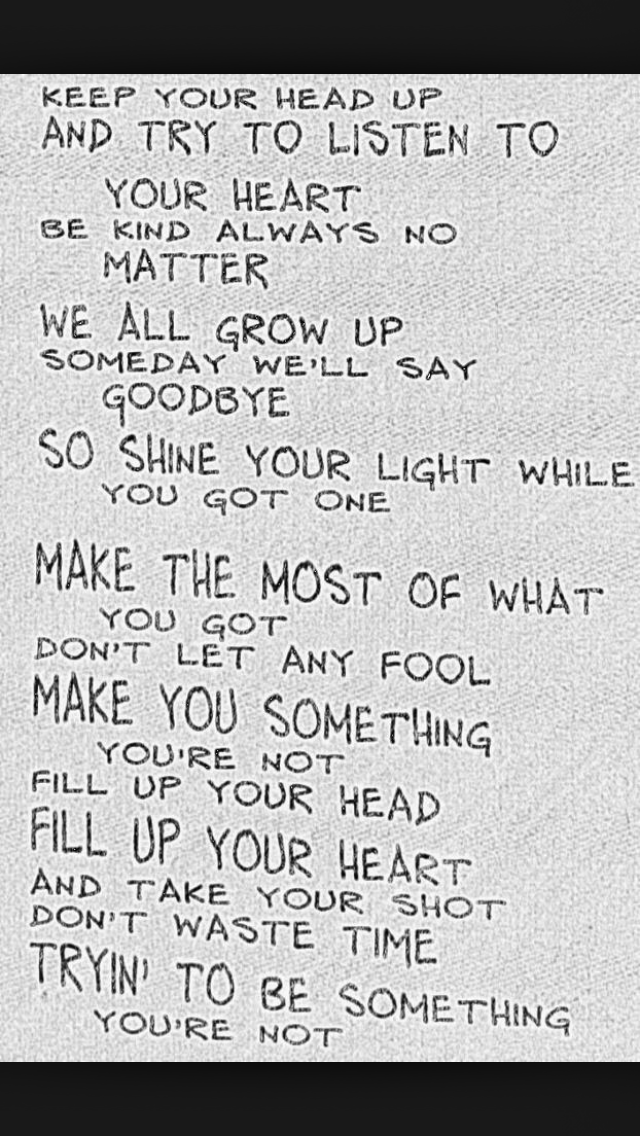 KEEP YOUR HEAD UP
AND TRY TO LISTEN TO
YOUR HEART
BE KIND ALWAYS NO
MATTER
WE ALL GROW UP
SOMEDAY WE'LL SAY
GOODBYE
SO SHINE YOUR LIGHT WHILE
YOU GOT ONE
MAKE THE MOST OF WHAT
YOU GOT
DON'T LET ANY FOOL
MAKE YOU SOMETHING
YOU'RE NOT
FILL UP YOUR HEAD
FILL UP YOUR HEART
AND TAKE YOUR SHOT
DON'T WASTE TIME
TRYIN' TO BE SOMETHING
YOU'RE NOT